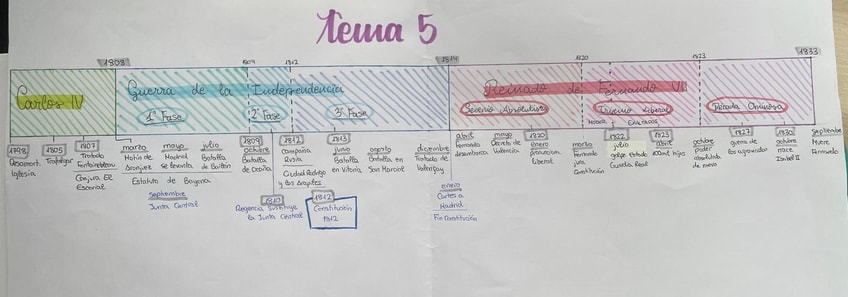 Tema 5
1808
1809
1812
1814
1820
1823
1833
Carlos IV
Guerra de la Independencia
1ª Fase
2ª Fase
3ª Fase
Reinado de Fernando VII
Sexenio Absolutista
Trienio Liberal
Década Ominosa
1798
Desamort.
Iglesia
1805
Trafalgar
1807
Tratado
Fontainebleau
Conjura EE
Escorial
marzo
Motín de
Aranjuez
mayo
Madrid
se levanta
julio
Batalla
de Bailén
Estatuto de Bayona
septiembre
Junta Central
1809
octubre
Batalla
de Ocaña
1810
Regencia sustituye
la Junta Central
1812
campaña
Rusia
Ciudad Rodrigo
y los Arapiles
1812
Constitución
1812
1813
junio
Batalla
en Vitoria
agosto
Batalla en
San Marcial
diciembre
Tratado de
Valençay
abril
Fernando
desembarca
enero
Cortes a
Madrid
Fin Constitución
mayo
Decreto de
Valencia
1820
enero
liberal
marzo
Fernando
jura
Constitución
1822
julio
golpe estado
Guardia Real
1823
abril
100mil hijos
octubre
poder
absolutista
de nuevo
1827
guerra de
los agraviados
1830
octubre
nace
Isabel II
septiembre
Muere
Fernando